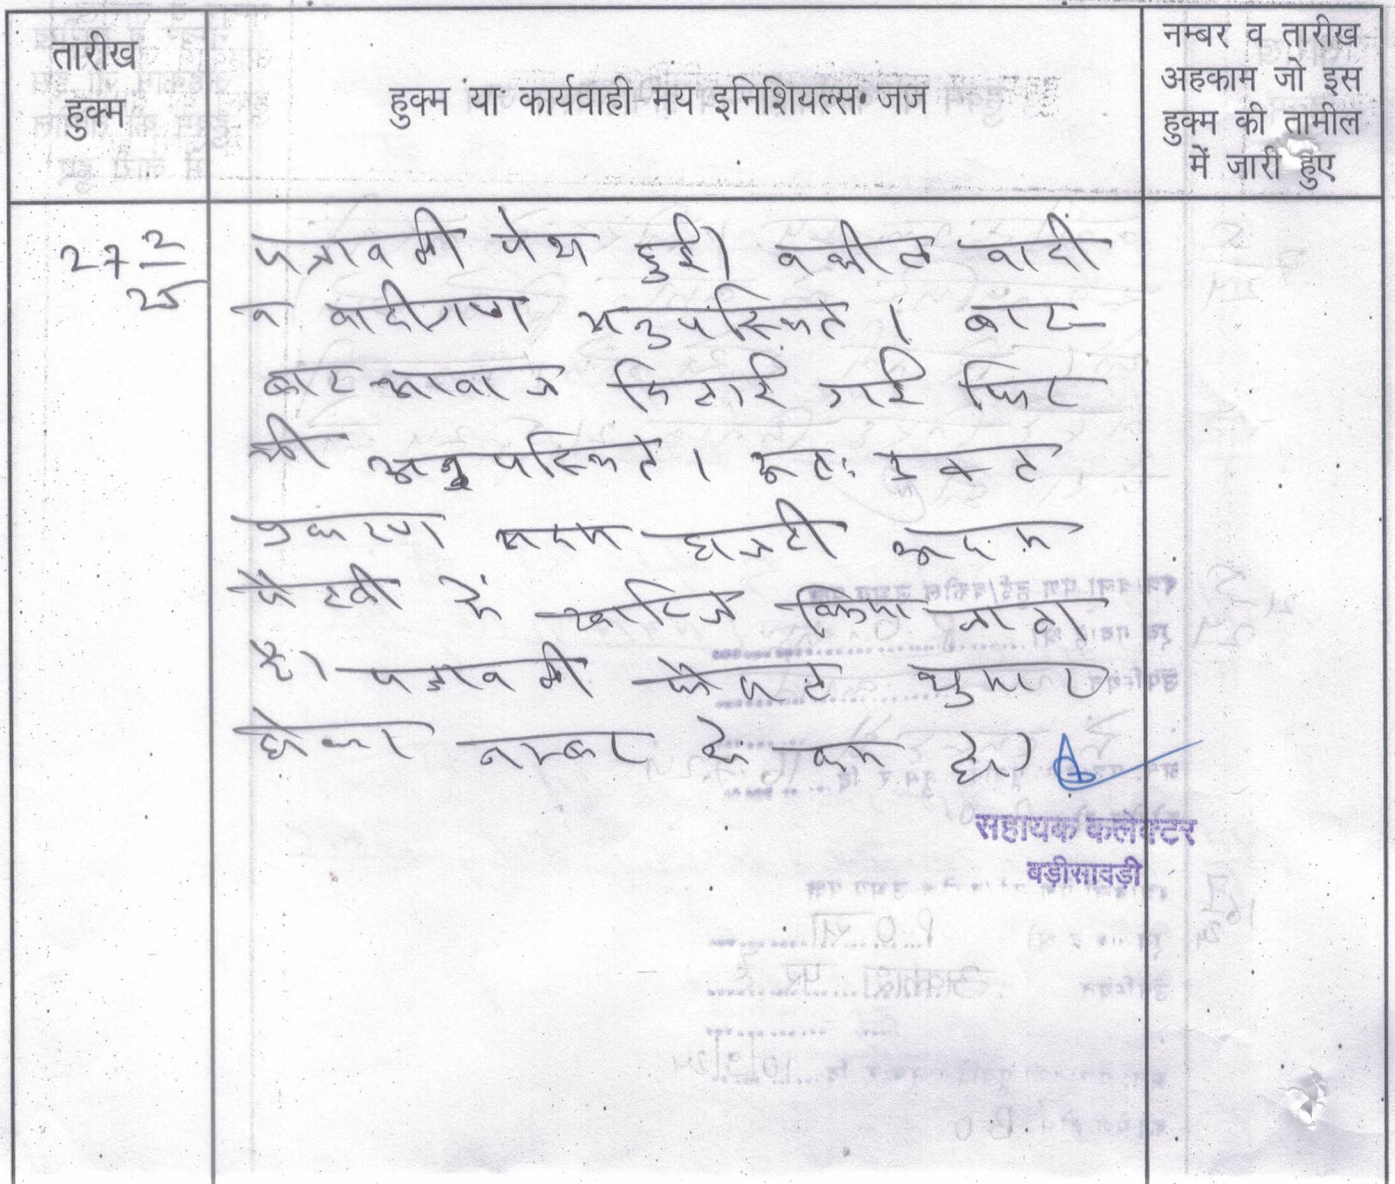 तारीख
हुक्म
हुक्म या कार्यवाही मय इनिशियल्स जज
नम्बर व तारीख
अहकाम जो इस
हुक्म की तामील
में जारी हुए
27 2/25
पत्रावली पेश हुई। वकील वादी
व वादीगण अनुपस्थित। बार
बार आवाज दिलाई गई फिर
भी अनुपस्थित। अतः
प्रकरण अदम हाजरी अदम
पैरवी में खारिज किया जाता
है। पत्रावली फैसल शुमार
होकर नम्बर से कम हो।
सहायक कलेक्टर
बड़ीसादड़ी